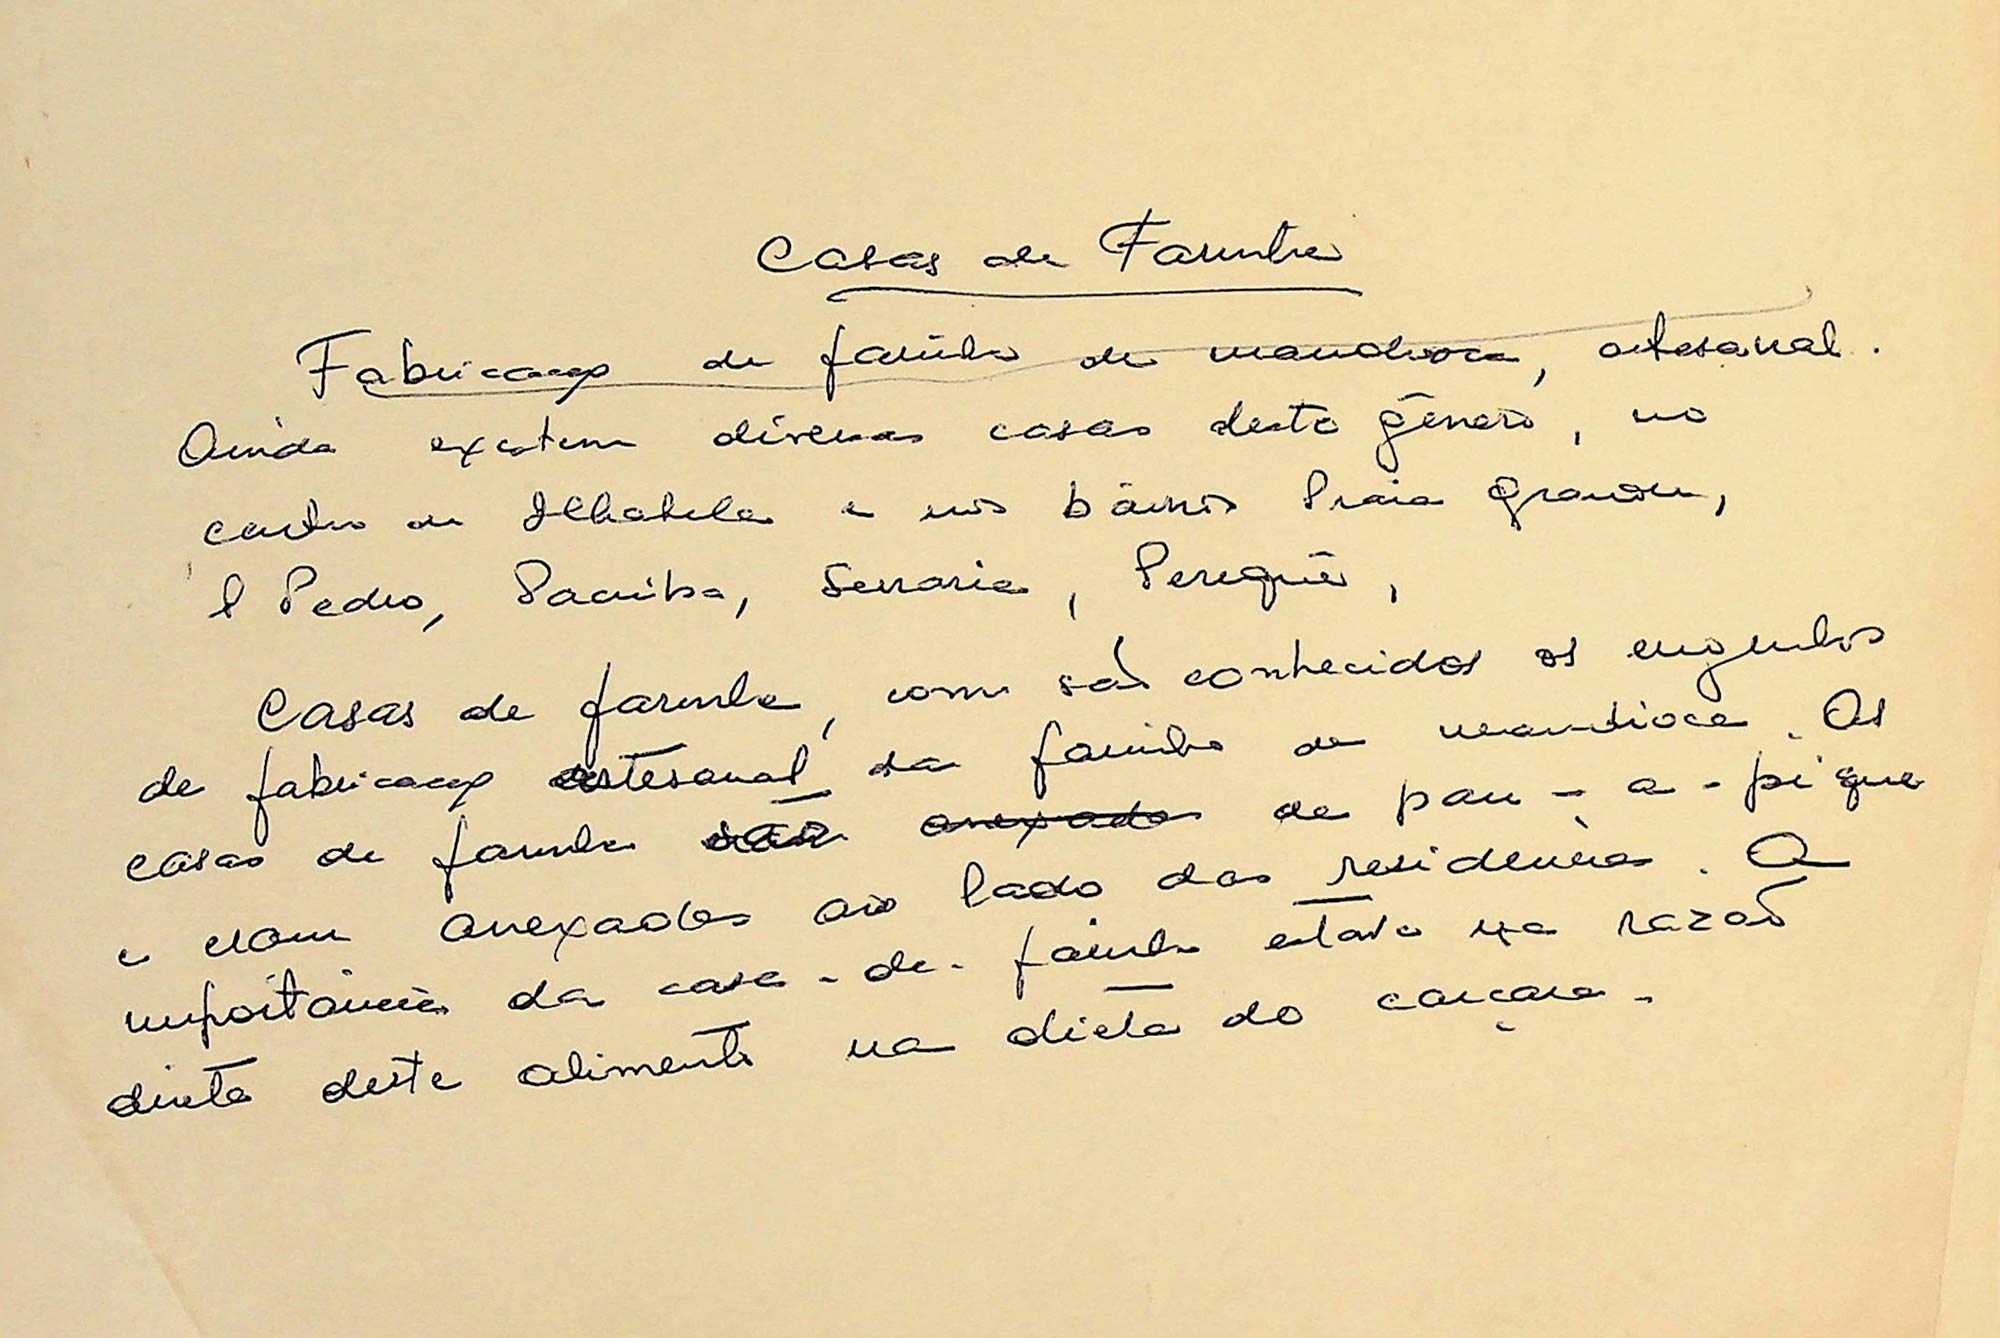 Casas de Farinha
Fabricação de farinha de mandioca, artesanal.
Ainda existem diversas casas deste gênero, no
centro de Ilhabela e nos bairros Praia Grande,
S Pedro, Pacuíba, Serraria, Perequê,
Casas de farinha, como são conhecidos os engenhos
de fabricação artesanal da farinha de mandioca. As
casas de farinha são anexado de pau-a-pique
e eram anexados ao lado das residências. A
importância da casa-de-farinha estava na razão
direta deste alimento na dieta do caiçara.